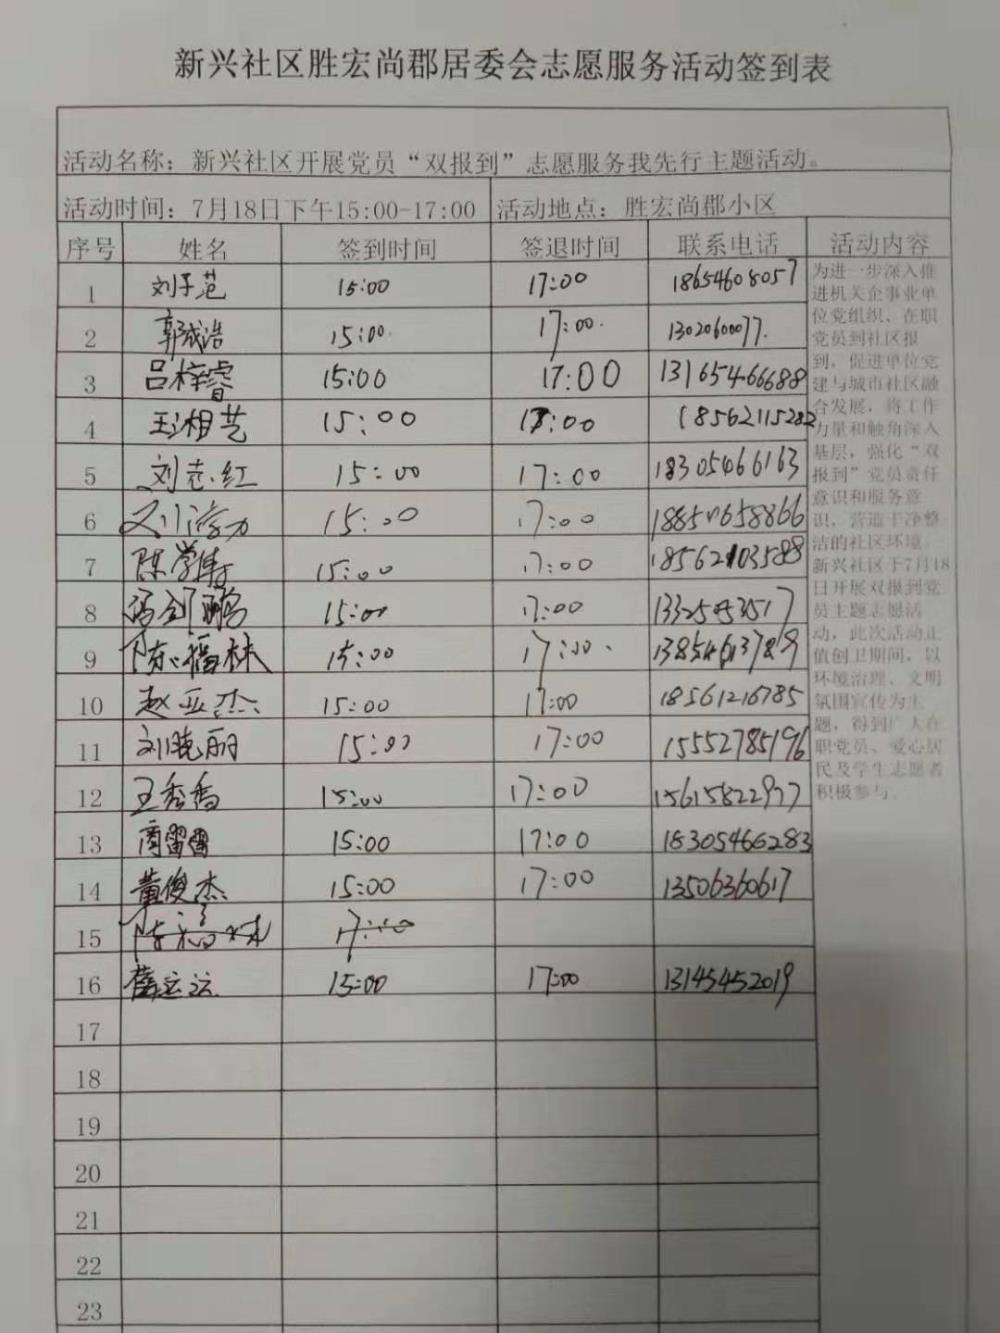 新兴社区胜宏尚郡居委会志愿服务活动签到表
活动名称：新兴社区开展党员“双报到”志愿服务我先行主题活动。
活动时间：7月18日下午15:00-17:00 活动地点：胜宏尚郡小区
序号 姓名 签到时间 签退时间 联系电话 活动内容
1 刘子范 15:00 17:00 18654608057
2 郭成浩 15:00. 17:00. 1302060077.
3 吕梓睿 15:00 17:00 13165466688
4 王湘艺 15:00 17:00 18562115282
5 刘志红 15:00 17:00 18305466163
6 15:00 17:00 18850658866
7 陈学博 15:00 17:00 18562103588
8 冯剑鹏 15:00 17:00
9 陈福林 15:00 17:00. 13854613789
10 赵亚杰 15:00 17:00 18561216785
11 刘晓丽 15:00 17:00 15552785196
12 王秀香 15:00 17:00 15615822977
13 商雷雷 15:00 17:00 183054662283
14 董俊杰 15:00 17:00 13506360617
15 陈福林 17:00
16 薛运运 15:00 17:00 13145452019
17
18
19
20
21
22
23
为进一步深入推
进机关企事业单
位党组织、在职
党员到社区报
到，促进单位党
建与城市社区融
合发展，将工作
力量和触角深入
基层，强化“双
报到”党员责任
意识和服务意
识，营造干净整
洁的社区环境。
新兴社区于7月18
日开展双报到党
员主题志愿活
动，此次活动正
值创卫期间，以
环境治理、文明
氛围宣传为主
题，得到广大在
职党员、爱心居
民及学生志愿者
积极参与。